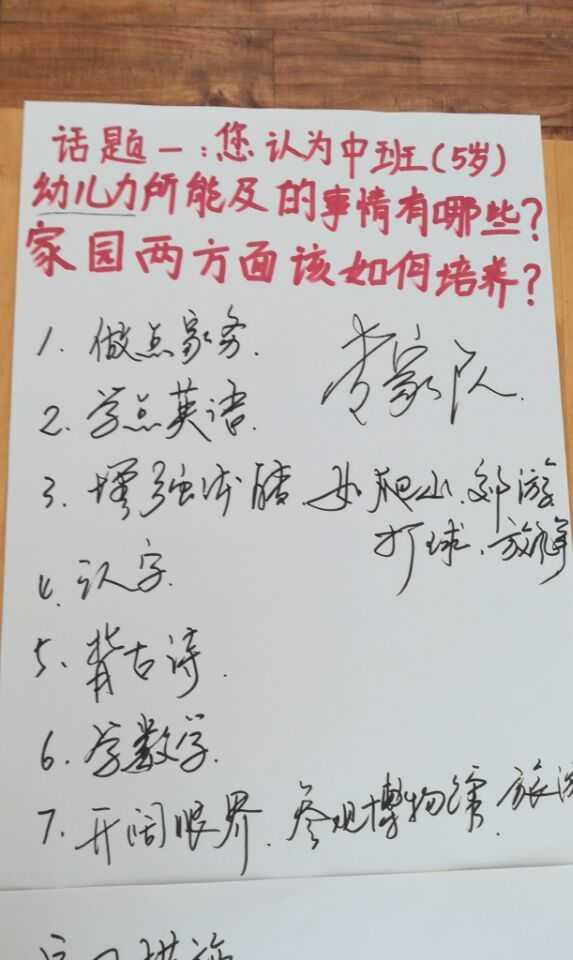 话题一:您认为中班(5岁)
幼儿力所能及的事情有哪些?
家园两方面该如何培养?
1. 做点家务.
李家队.
2. 学点英语.
3. 增强体质 如爬山、郊游
打球、放风筝
4. 认字.
5. 背古诗.
6. 学数学.
7. 开阔眼界、参观博物馆、旅游
措施